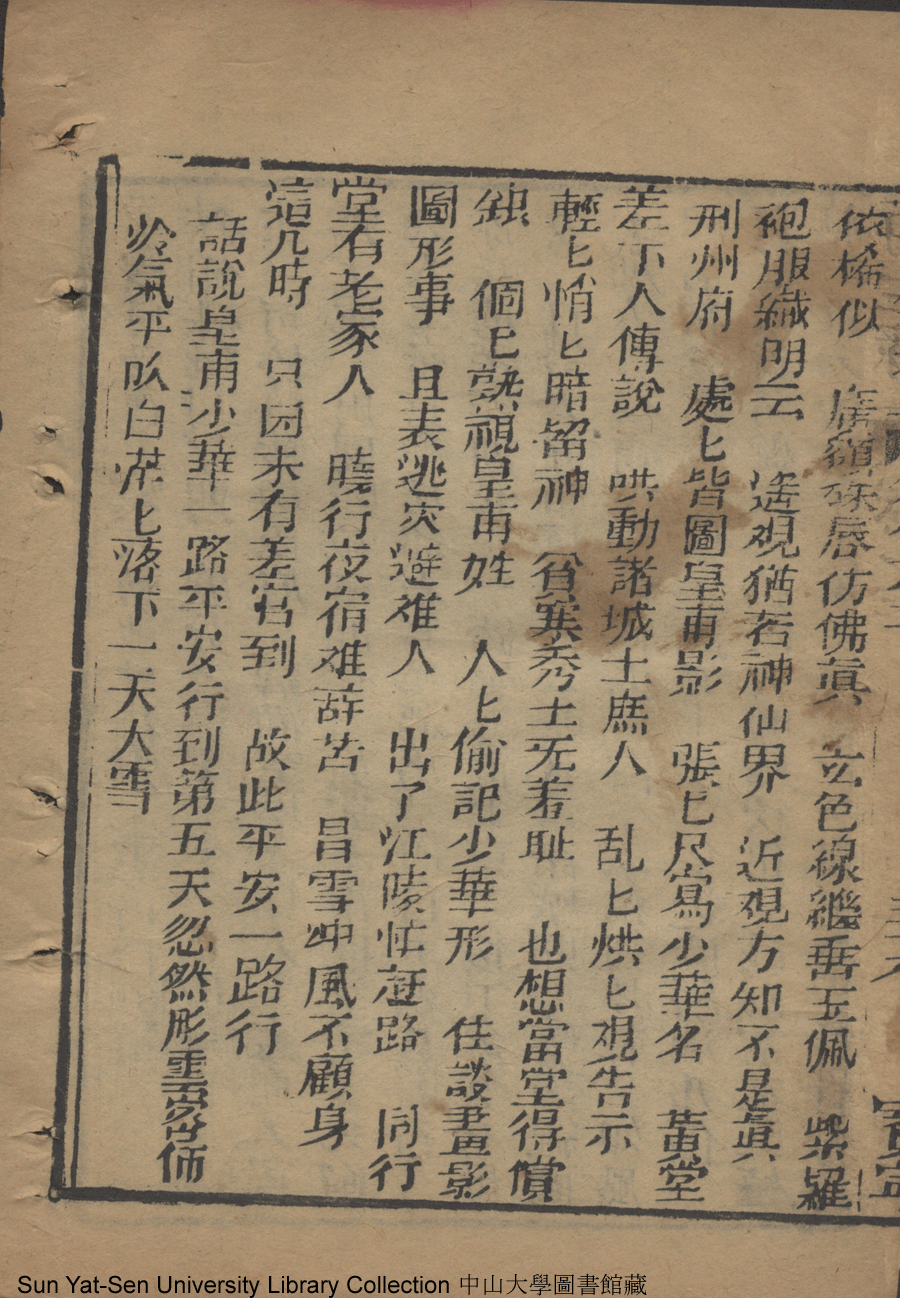 依稀似　廣額硃唇仿佛真　玄色線繼垂玉佩　紫羅
袍服織明云　遙視猶若神仙界　近視方知不是真
刑州府　處匕皆圖皇甫影　張匕尽寫少華名　黃堂
差下人傳說　哄動諸城士庶人　乱匕烘匕覌告示
輕匕悄匕暗留神　貧寒秀士无羞耻　也想當堂得償
銀　個匕熟視皇甫姓　人匕偷記少華形　住談畫影
圖形事　且表逃灾避难人　出了江陵忙赶路　同行
堂有老家人　曉行夜宿难辞苦　昌雪冲風不顧身
這几時　只因未有差官到　故此平安一路行
話說皇甫少華一路平安行到第五天忽然彤雲密佈
冷氣平吹白茫匕落下一天大雪
Sun Yat-Sen University Library Collection 中山大學圖書館藏